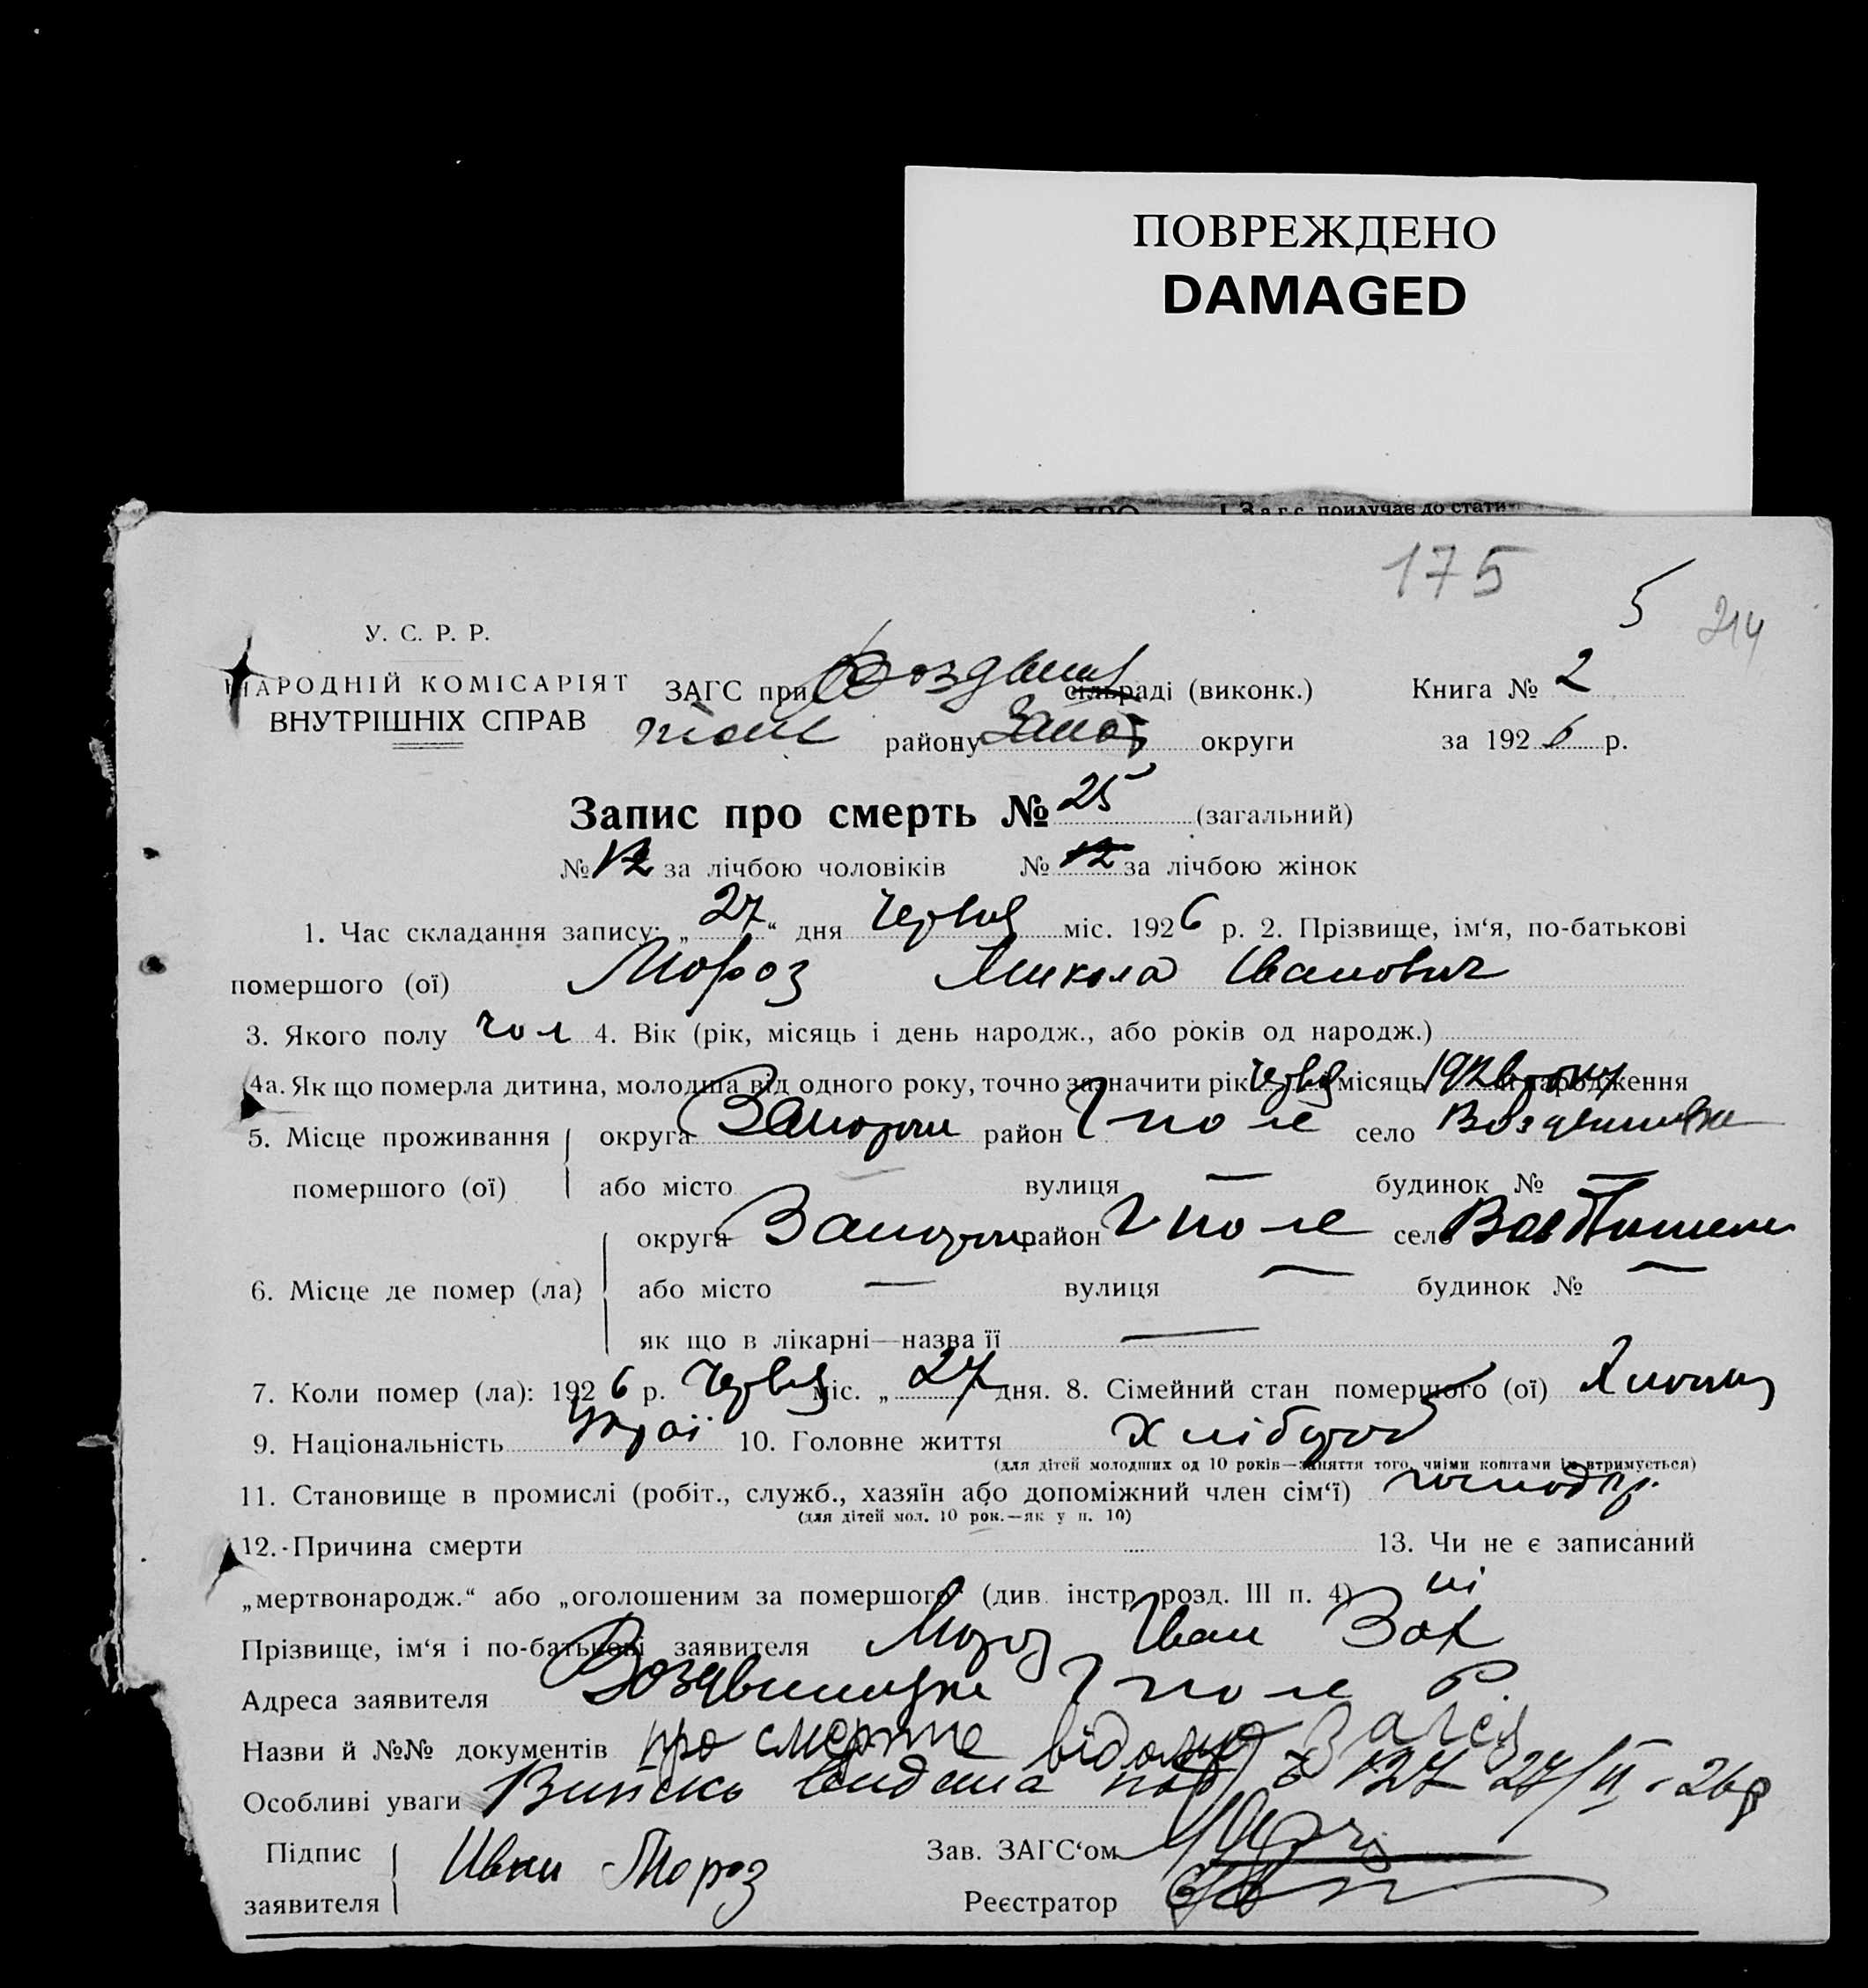 ПОВРЕЖДЕНО
DAMAGED
Загс прилучає до стати-
175
5
214
У. С. Р. Р.
НАРОДНІЙ КОМІСАРІЯТ
ВНУТРІШНІХ СПРАВ
ЗАГС при сільраді (виконк.) Книга № 2
району Запор округи за 1926 р.
Запис про смерть № 25 (загальний)
№ 12 за лічбою чоловіків № 12 за лічбою жінок
1. Час складання запису: „27“ дня Червня міс. 1926 р. 2. Прізвище, ім‘я, по-батькові
помершого (ої) Мороз Микола Іванович
3. Якого полу чол 4. Вік (рік, місяць і день народж., або років од народж.)
4а. Як що померла дитина, молодша від одного року, точно зазначити рік Червня місяць 1926 року народження
5. Місце проживання округа район Г поле село
помершого (ої) або місто — вулиця — будинок № —
округа район Г поле село
6. Місце де помер (ла) або місто — вулиця — будинок № —
як що в лікарні—назва її —
7. Коли помер (ла): 1926 р. Червня міс. „27 дня. 8. Сімейний стан помершого (ої)
9. Національність Украї 10. Головне життя Хлібороб
(для дітей молодших од 10 років—заняття того, чиїми коштами їх втримується)
11. Становище в промислі (робіт., служб., хазяїн або допоміжний член сім‘ї)
(для дітей мол. 10 рок.—як у п. 10)
12. Причина смерти 13. Чи не є записаний
„мертвонародж.“ або „оголошеним за помершого“ (див. інстр. розд. III п. 4) ні
Прізвище, ім‘я і по-батькові заявителя Мороз Іван Зах
Адреса заявителя Г поле Р.
Назви й №№ документів про смерть відомо Загсу
Особливі уваги Випись видана 127 27/VI-26р
Підпис
заявителя Иван Мороз Зав. ЗАГС‘ом
Реєстратор